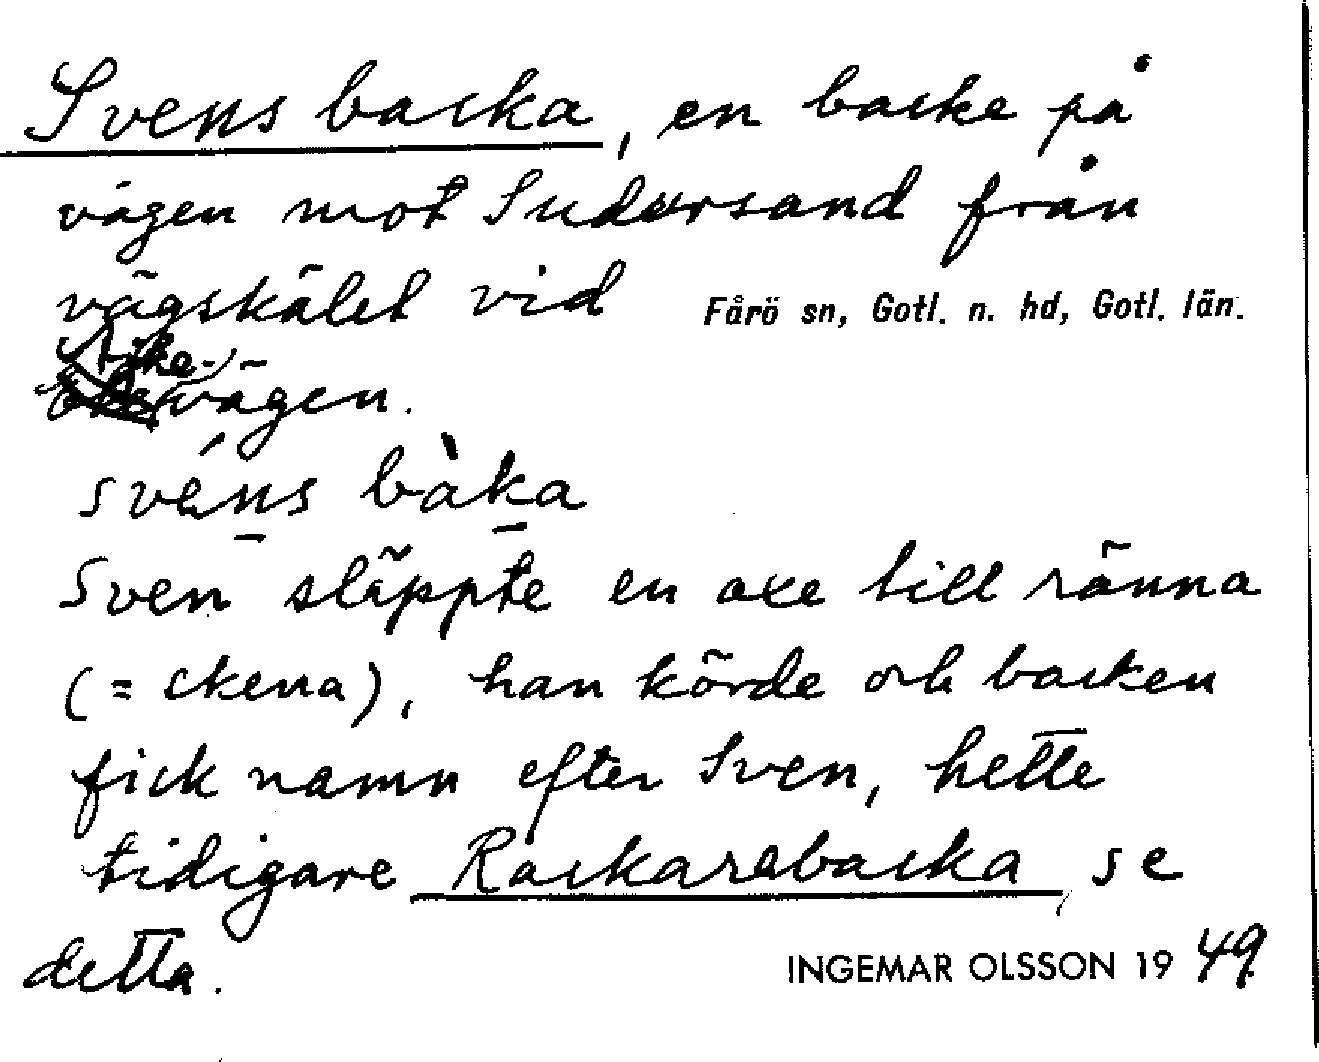 Svens backa, en backe på
vägen mot Sudersand från
vägskälet vid
Fårö sn, Gotl. n. hd, Gotl. län.
vägen.
svéns bàka
Sven släppte en oxe till ränna
(= skena), han körde och backen
fick namn efter Sven, hette
tidigare Rackarebacka, se
detta.
INGEMAR OLSSON 1949